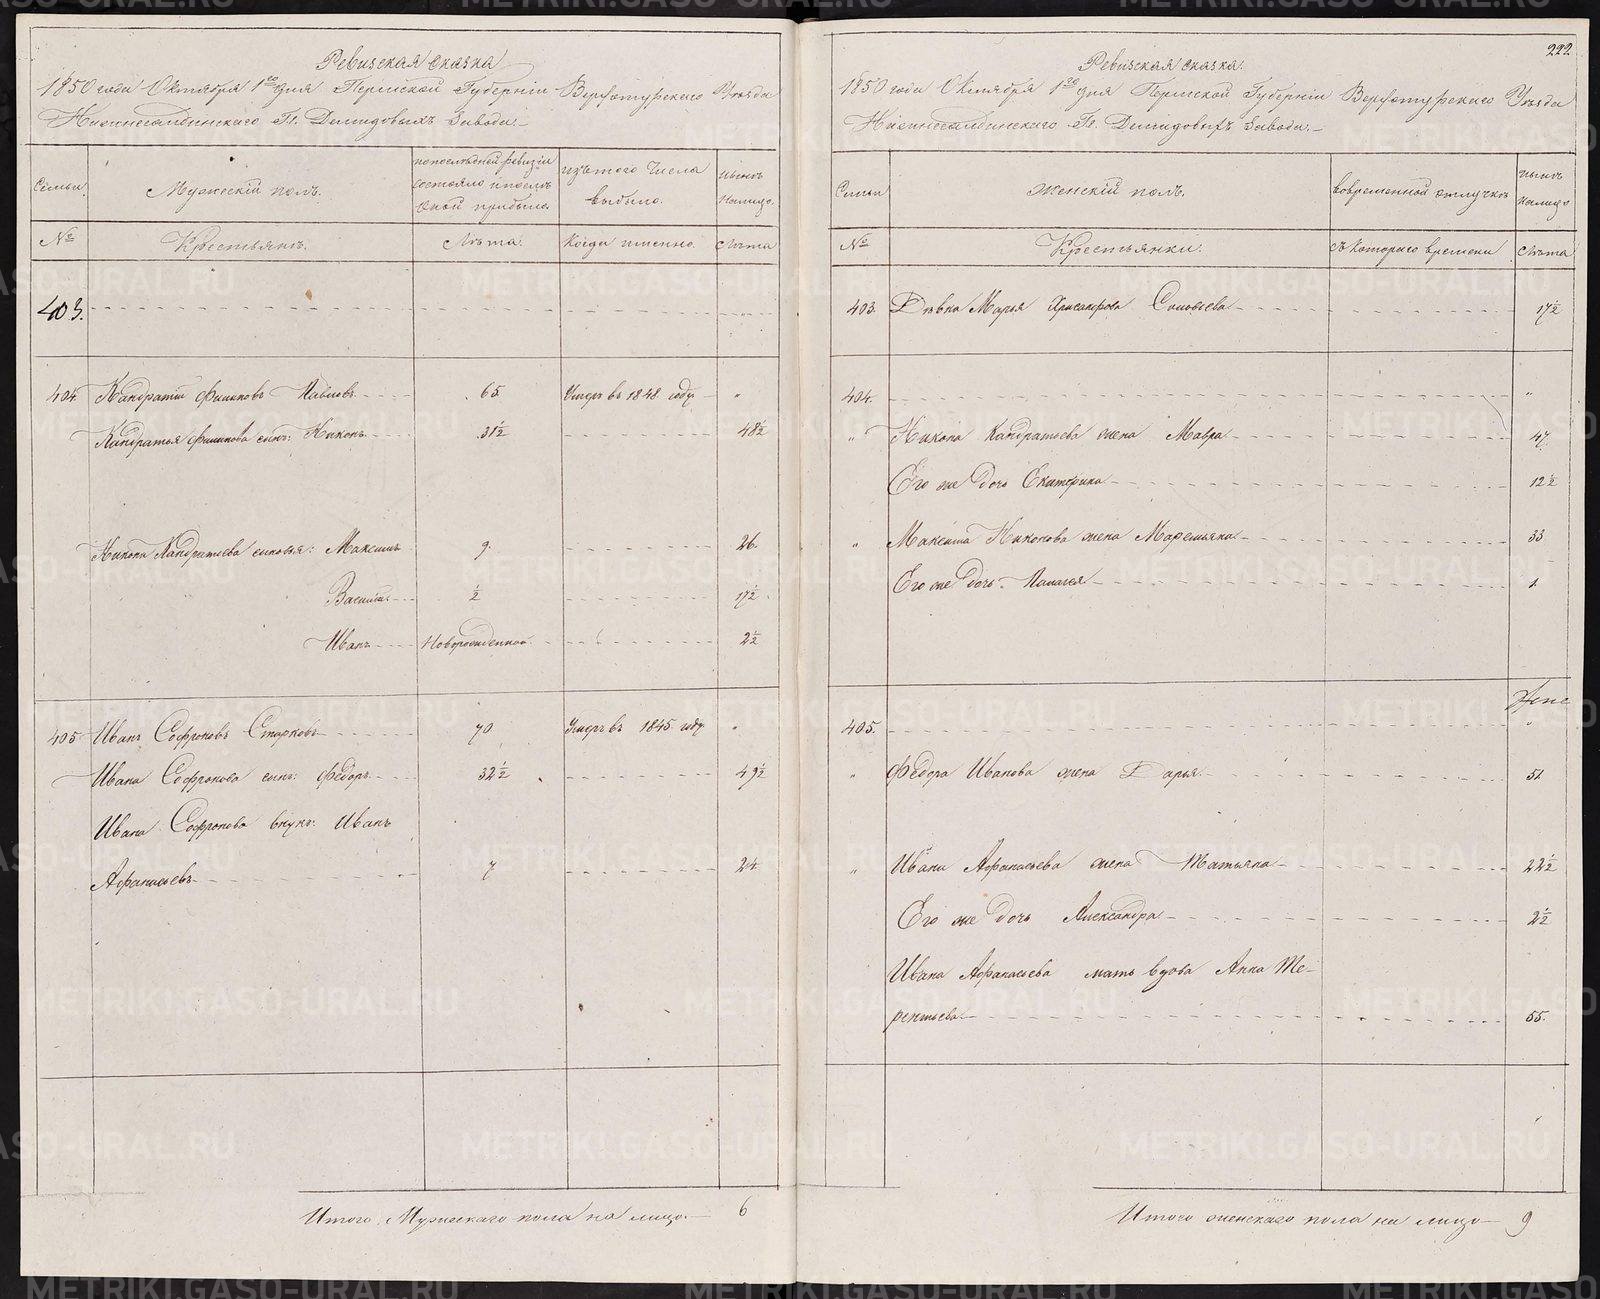 Ревизская сказка
1850 года Октября 1го дня Пермской Губернiи Верхотурскаго Уѣзда
Нижнесалдинскаго Гг. Демидовыхъ Завода.
Семьи
Мужескiй полъ.
по последней ревизiи
состояло и после
оной прибыло.
изъ того числа
выбыло.
нынѣ
налицо.
№
Крестьянъ.
Лѣта.
Когда именно.
Лѣта
403.
404. Кандратiй Филиповъ Павловъ 65 Умеръ въ 1848 году "
Кандратья Филипова сынъ: Никонъ 31½ 48½
Никона Кандратьева сыновья: Максимъ 9. 26.
Василiй ½ 17½
Иванъ Новорожденной 2½
405 Иванъ Софроновъ Старковъ 70 Умеръ въ 1845 году "
Ивана Софронова сынъ: Федоръ 32½ 49½
Ивана Софронова внукъ: Иванъ
Афанасьевъ 7 24
Итого Мужескаго пола на лицо 6
222
Ревизская сказка.
1850 года Октября 1го дня Пермской Губернiи Верхотурскаго Уѣзда
Нижнесалдинскаго Гг. Демидовыхъ Завода.
Семьи
Женскiй полъ.
во временной отлучкѣ
нынѣ
налицо
№
Крестьянки.
съ котораго времени
Лѣта
403. Дѣвка Марья Хрисанфова Соловьева 17½
404. "
" Никона Кандратьева жена Мавра 47.
Его же дочь Екатерина 12½
" Максима Никонова жена Маремьяна 33
Его же дочь Палагея 1.
405. "
" Федора Иванова жена Дарья 51
" Ивана Афанасьева жена Татьяна 22½
Его же дочь Александра 2½
Ивана Афанасьева мать вдова Анна Те-
рентьева 55.
Итого женскаго пола на лицо 9
METRIKI.GASO-URAL.RU